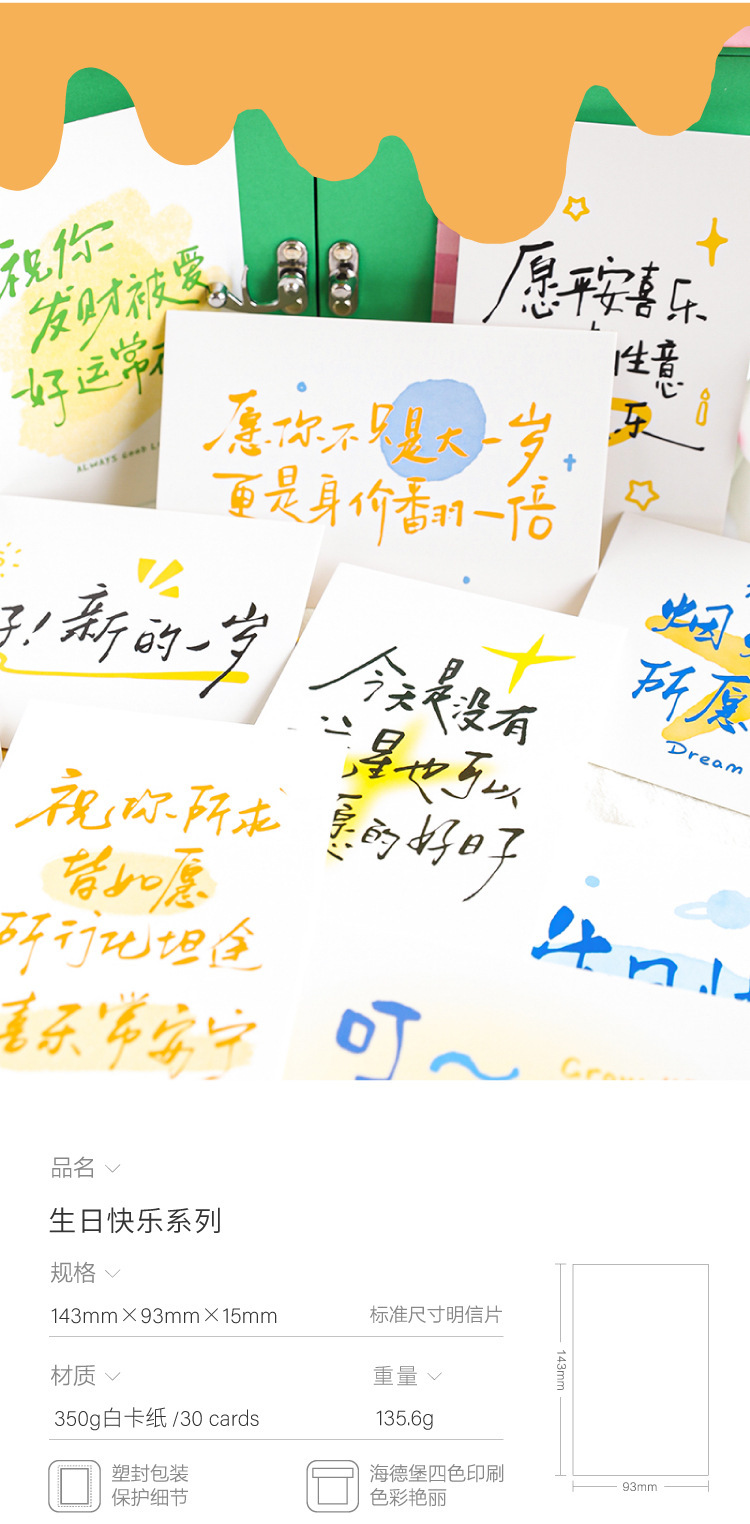 祝你
发财被爱
好运常在
ALWAYS GOOD L
愿平安喜乐
性意
乐
愿你不只是大一岁
更是身价翻一倍
好!新的一岁
今天是没有
星也可以
愿的好日子
所愿
Dream
祝你所求
皆如愿
所行化坦途
喜乐常安宁
生日快
叮~
Grow
品名
生日快乐系列
规格
143mm×93mm×15mm 标准尺寸明信片
材质 重量
350g白卡纸 /30 cards 135.6g
143mm
93mm
塑封包装
保护细节
海德堡四色印刷
色彩艳丽